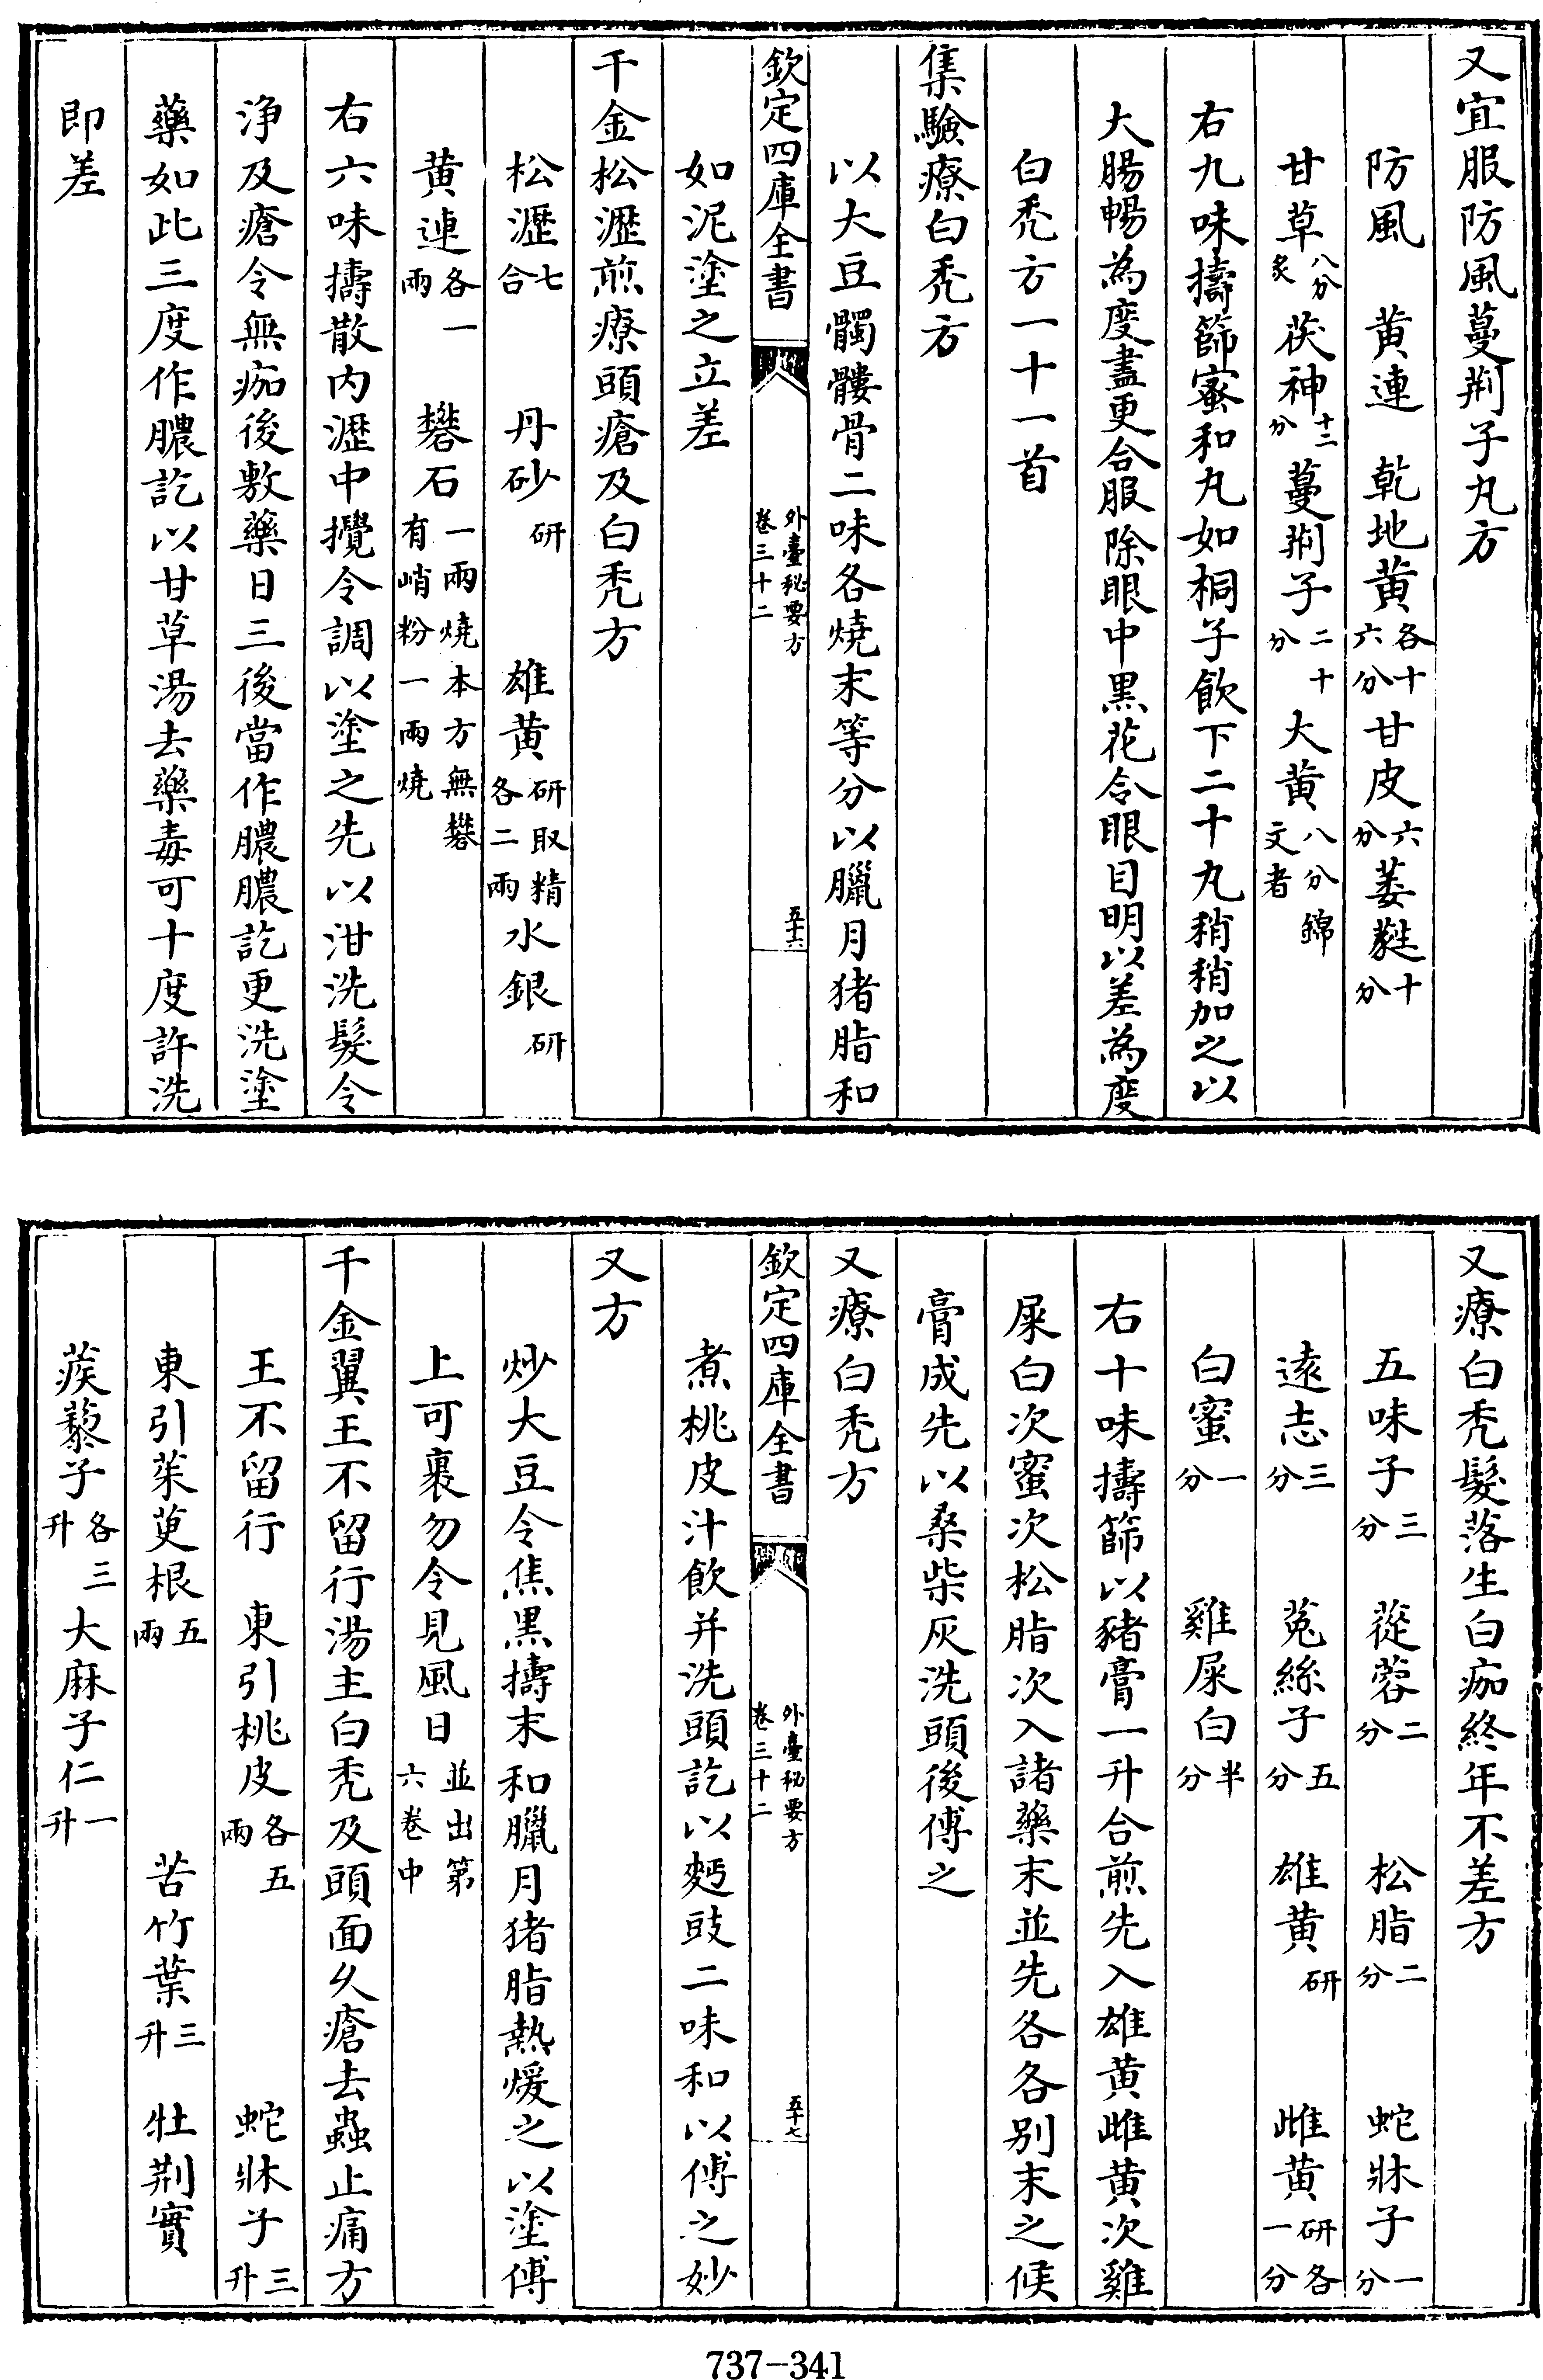 又宜服防風蔓荆子丸方
防風 黄連 乾地黄各十六分 甘皮六分 萎蕤十分
甘草八分炙 茯神十二分 蔓荆子二十分 大黄八分錦文者
右九味擣篩蜜和丸如桐子飲下二十丸稍稍加之以
大腸暢為度盡更合服除眼中黒花令眼目明以差為度
白秃方一十一首
集驗療白秃方
以大豆髑髏骨二味各燒末等分以臘月猪脂和
欽定四庫全書 外臺秘要方卷三十二 五十六
如泥塗之立差
千金松瀝煎療頭瘡及白秃方
松瀝七合 丹砂研 雄黄研取精各二兩 水銀研
黄連各一兩 礬石一兩燒本方無礬有峭粉一兩燒
右六味擣散内瀝中攪令調以塗之先以泔洗髮令
浄及瘡令無痂後敷藥日三後當作膿膿訖更洗塗
藥如此三度作膿訖以甘草湯去藥毒可十度許洗
即差
又療白秃髮落生白痂終年不差方
五味子三分 蓯蓉二分 松脂二分 蛇牀子一分
逺志三分 菟絲子五分 雄黄研 雌黄研各一分
白蜜一分 雞屎白半分
右十味擣篩以豬膏一升合煎先入雄黄雌黄次雞
屎白次蜜次松脂次入諸藥末並先各各别末之候
膏成先以桑柴灰洗頭後傅之
又療白秃方
欽定四庫全書 外臺秘要方卷三十二 五十七
煮桃皮汁飲并洗頭訖以麫豉二味和以傅之妙
又方
炒大豆令焦黒擣末和臘月猪脂熱煖之以塗傅
上可裹勿令見風日並出第六卷中
千金翼王不留行湯主白秃及頭面久瘡去蟲止痛方
王不留行 東引桃皮各五兩 蛇牀子三升
東引茱萸根五兩 苦竹葉三升 牡荆實
蒺藜子各三升 大麻子仁一升
737-341